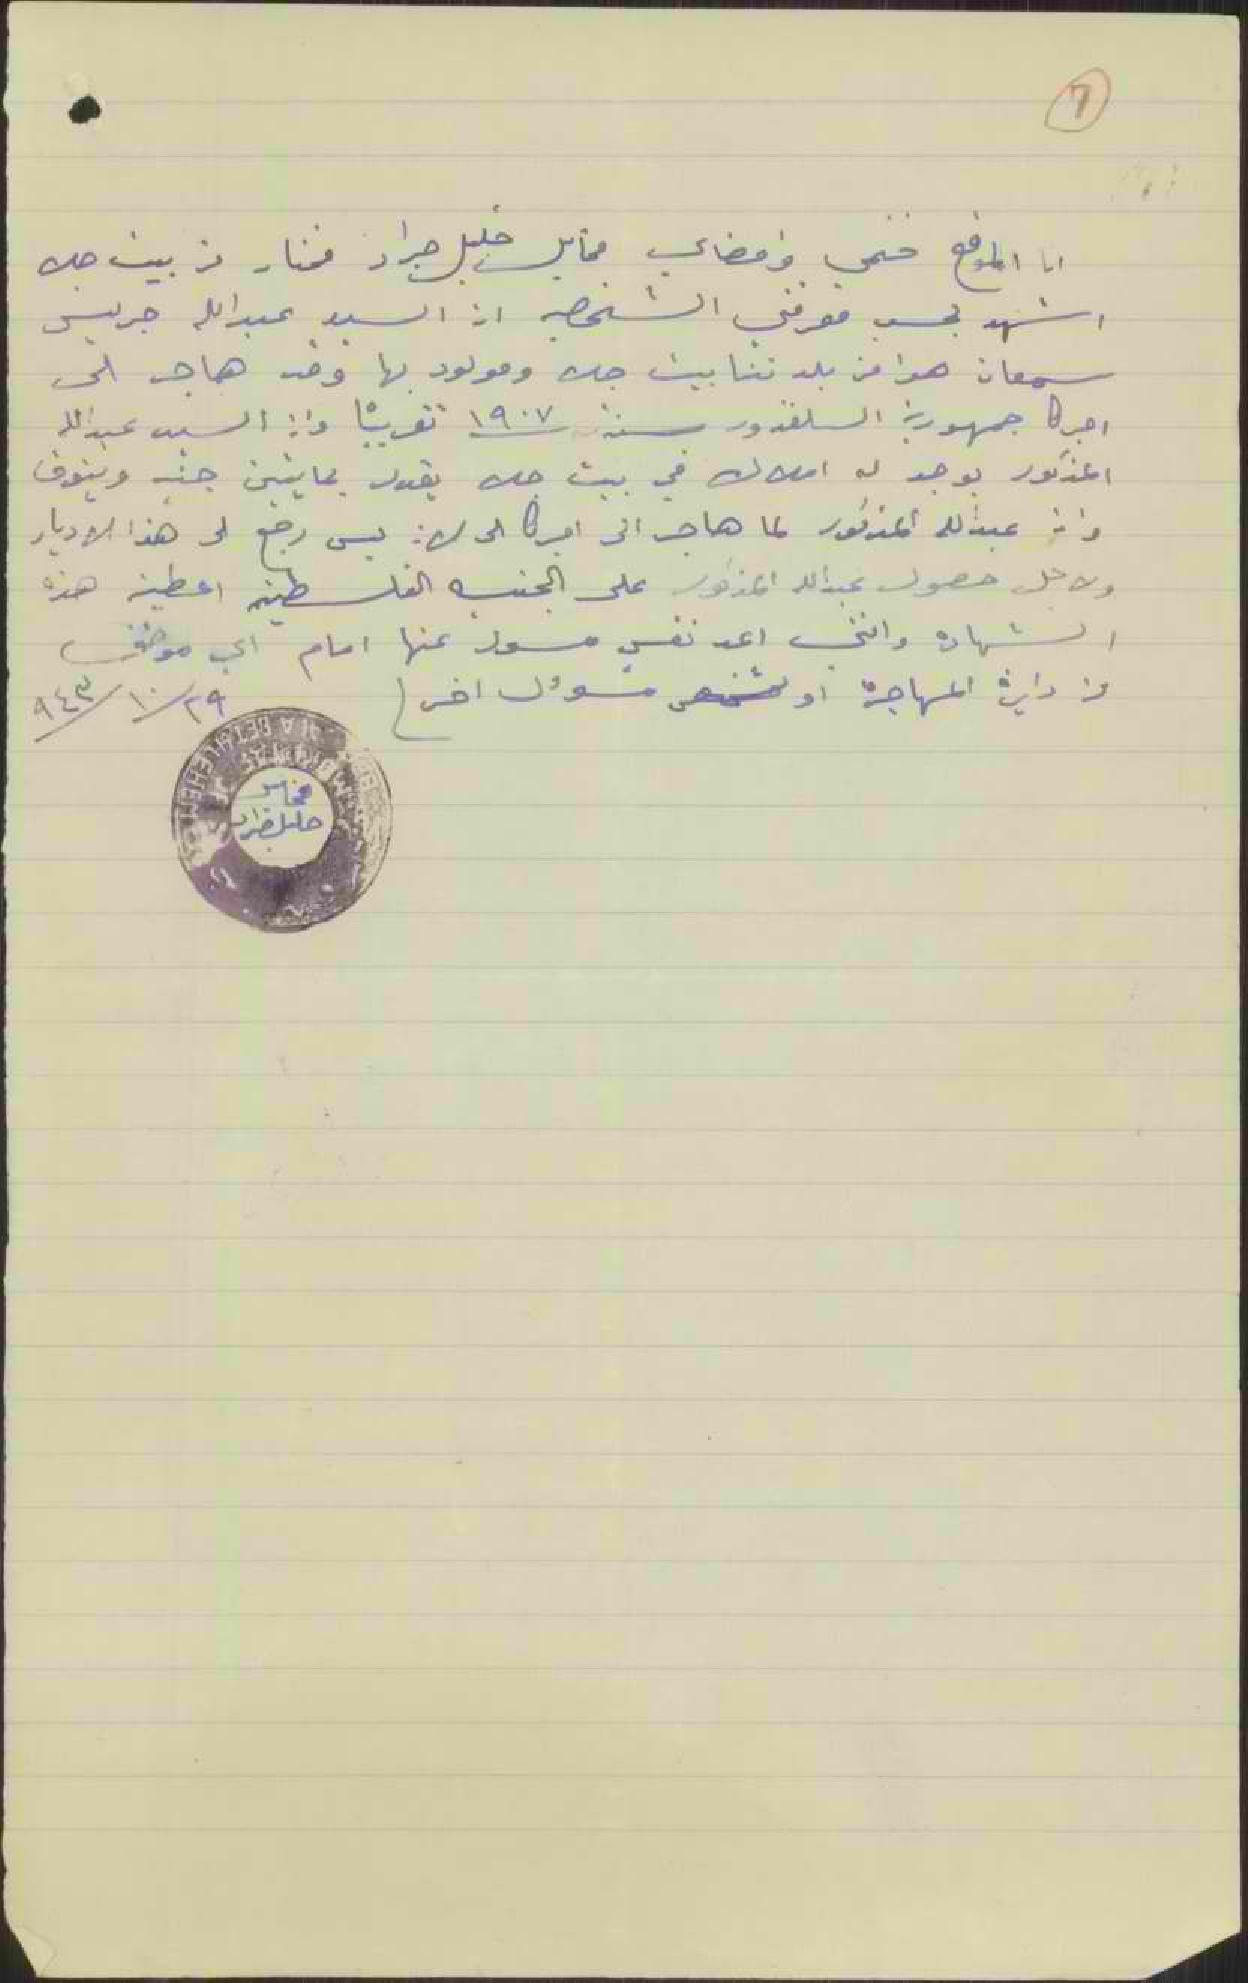 7
انا الموقع ختمي وامضاي مقابل خليل جراد مختار من بيت جالا
اشهد بحسب معرفتي الشخصيه ان السيد عبدالله جريس
سمعان هوا من بلدتنا بيت جالا ومولود بها وقد هاجر الى
امركا جمهورية السلفدور سنة ١٩٠٧ تقريبًا وان السيد عبدالله
المذكور يوجد له املاك في بيت جالا يقدر بمايتين جنيه وينوف
وان عبدالله المذكور لما هاجر الى امركا الى لان ليس رجع الى هذا الاديار
ولاجل حصول عبدالله المذكور على الجنسيه الفلسطينيه اعطيت هذه
الشهاده وانني اعد نفسي مسول عنها امام اي موظف
من دايرة المهاجرة او شخص مسوول اخر
٢٩/١٠/٩٤٣
BETHLEHEM
مختار
خليل جراد